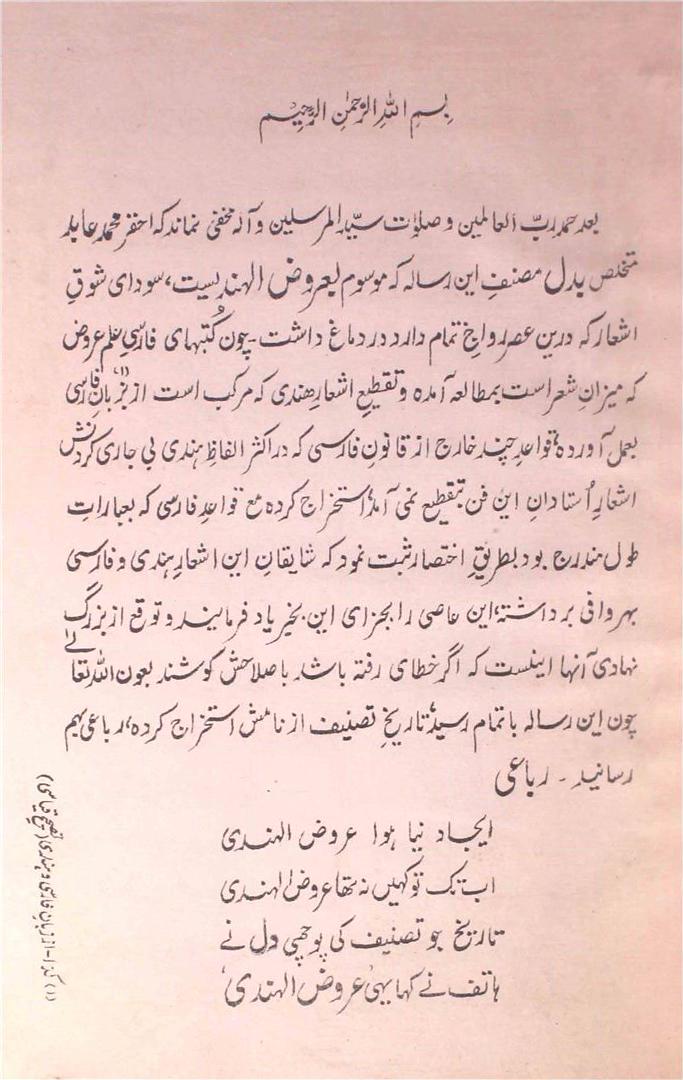 بِسمِ اللهِ الرَّحمٰنِ الرَّحِیْم
بعد حمد ربّ العالمین و صلوٰت سیّد المرسلین و آلہ مخفی نماند کہ احقر محمد عابد
متخلص بدل مصنفِ این رسالہ کہ موسوم بعروض الہندیست، سودای شوقِ
اشعار کہ درین عصر رواجِ تمام دارد در دماغ داشت - چون کُتبہای فارسیِ علمِ عروض
کہ میزانِ شعر است بمطالعہ آمدہ و تقطیعِ اشعارِ ہندی کہ مرکب است از بزبانِ(۱) فارسی
بعمل آوردہ، قواعدِ چند خارج از قانونِ فارسی کہ در اکثر الفاظِ ہندی بی جاری کردنش
اشعارِ اُستادانِ این فن بتقطیع نمی آمد، استخراج کردہ مع قواعدِ فارسی کہ بعباراتِ
طول مندرج بود بطریقِ اختصار ثبت نمود کہ شایقانِ این اشعارِ ہندی و فارسی
بہر وافی برداشتہ، این عاصی را بجزای این بخیر یاد فرمایند و توقع از بزرگ
نہادی آنہا اینست کہ اگر خطای رفتہ باشد باصلاحش کوشند بعون اللہ تعالےٰ
چون این رسالہ باتمام رسید، تاریخِ تصنیف از نامش استخراج کردہ، رباعی بہم
رسانید - رباعی
ایجاد نیا ہوا عروض الہندی
اب تک تو کہیں نہ تھا عروض الہندی
تاریخ جو تصنیف کی پوچھی دل نے
ہاتف نے کہا یہی 'عروض الہندی'
(۱) کذا - از زبانِ فارسی و ہندی (تصحیحِ قیاسی)